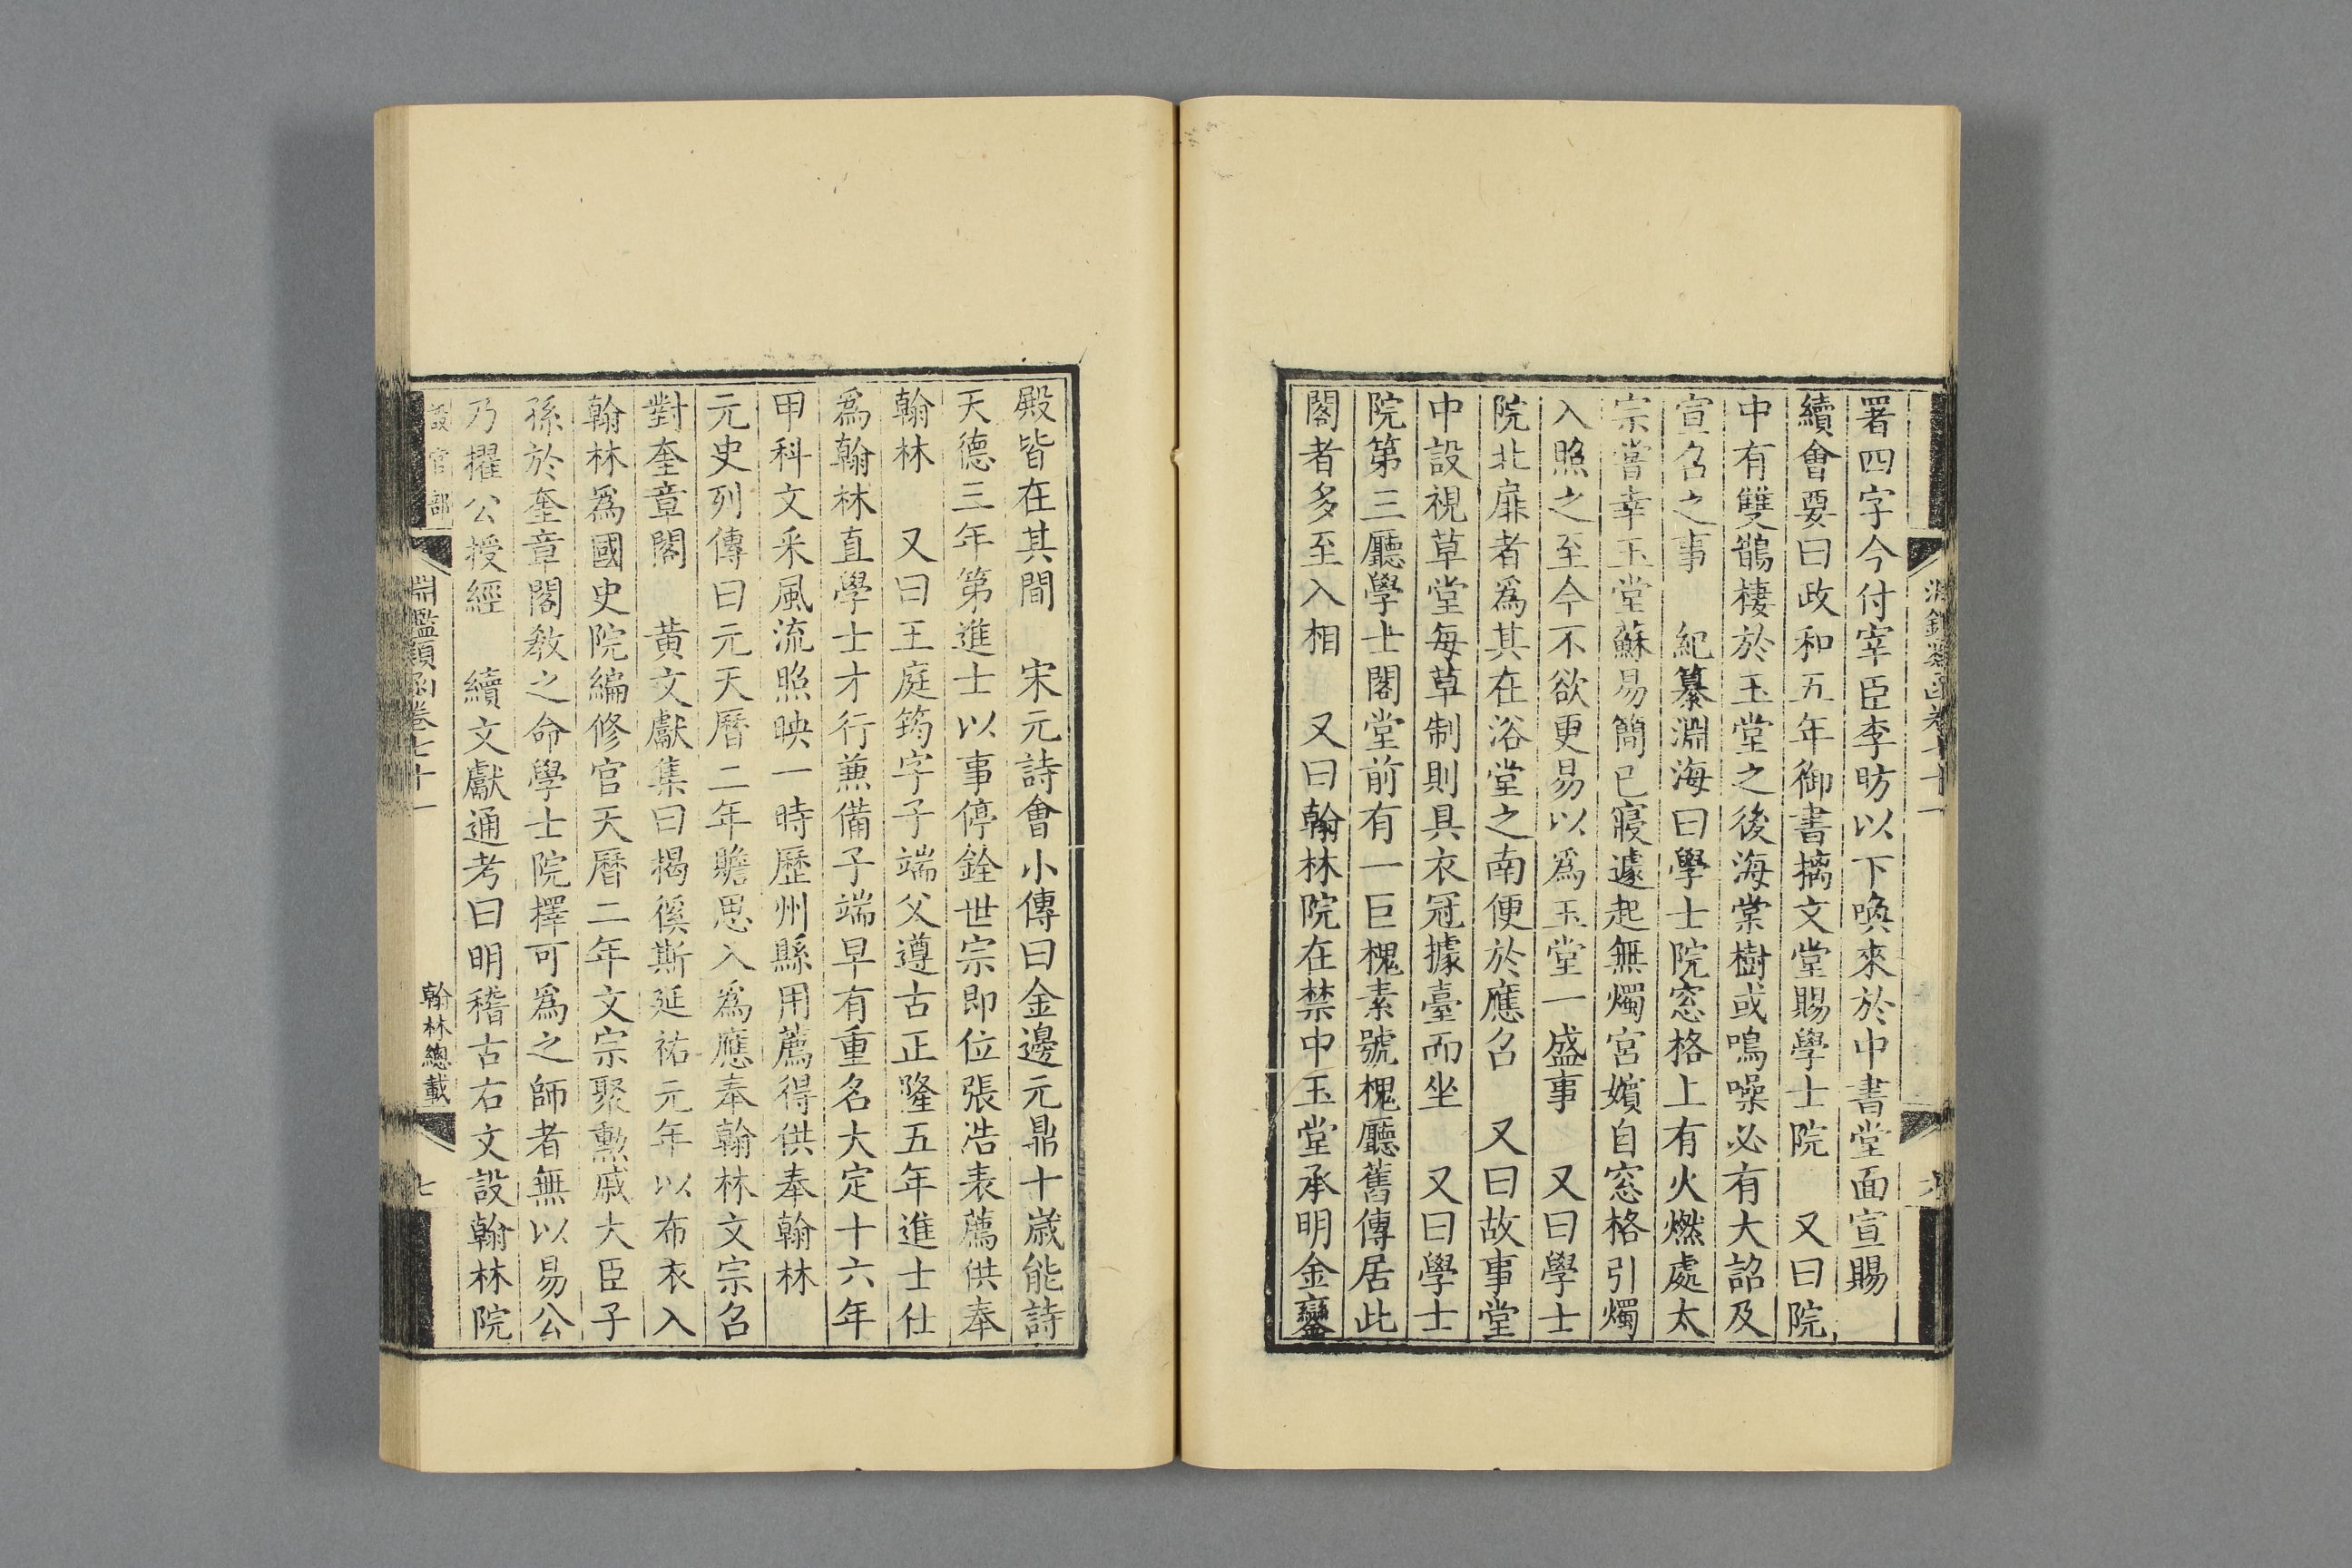 署四字今付宰臣李昉以下喚來於中書堂面宣賜
續會要曰政和五年御書摛文堂賜學士院　又曰院
中有雙鵲棲於玉堂之後海棠樹或鳴噪必有大詔及
宣召之事　紀纂淵海曰學士院窓格上有火燃處太
宗嘗幸玉堂蘇易簡已寢遽起無燭宮嬪自窓格引燭
入照之至今不欲更易以爲玉堂一盛事　又曰學士
院北扉者爲其在浴堂之南便於應召　又曰故事堂
中設視草堂每草制則具衣冠據臺而坐　又曰學士
院第三廳學士閣堂前有一巨槐素號槐廳舊傳居此
閣者多至入相　又曰翰林院在禁中玉堂承明金鑾
殿皆在其間　宋元詩會小傳曰金邊元鼎十歲能詩
天德三年第進士以事停銓世宗即位張浩表薦供奉
翰林　又曰王庭筠字子端父遵古正隆五年進士仕
爲翰林直學士才行兼備子端早有重名大定十六年
甲科文采風流照映一時歷州縣用薦得供奉翰林
元史列傳曰元天曆二年贍思入爲應奉翰林文宗召
對奎章閣　黃文獻集曰揭傒斯延祐元年以布衣入
翰林爲國史院編修官天曆二年文宗聚勲戚大臣子
孫於奎章閣教之命學士院擇可爲之師者無以易公
乃擢公授經　續文獻通考曰明稽古右文設翰林院
設官部
淵鑑類函卷七十一
翰林總載
七